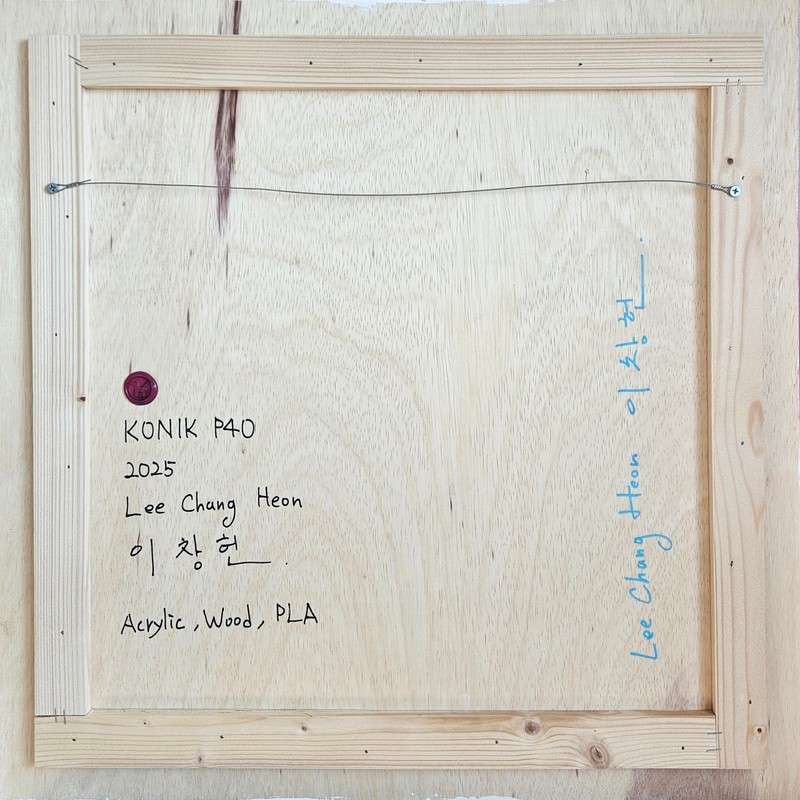 KONIK P40
2025
Lee Chang Heon
이 창 헌.
Acrylic, Wood, PLA
Lee Chang Heon 이 창 헌.